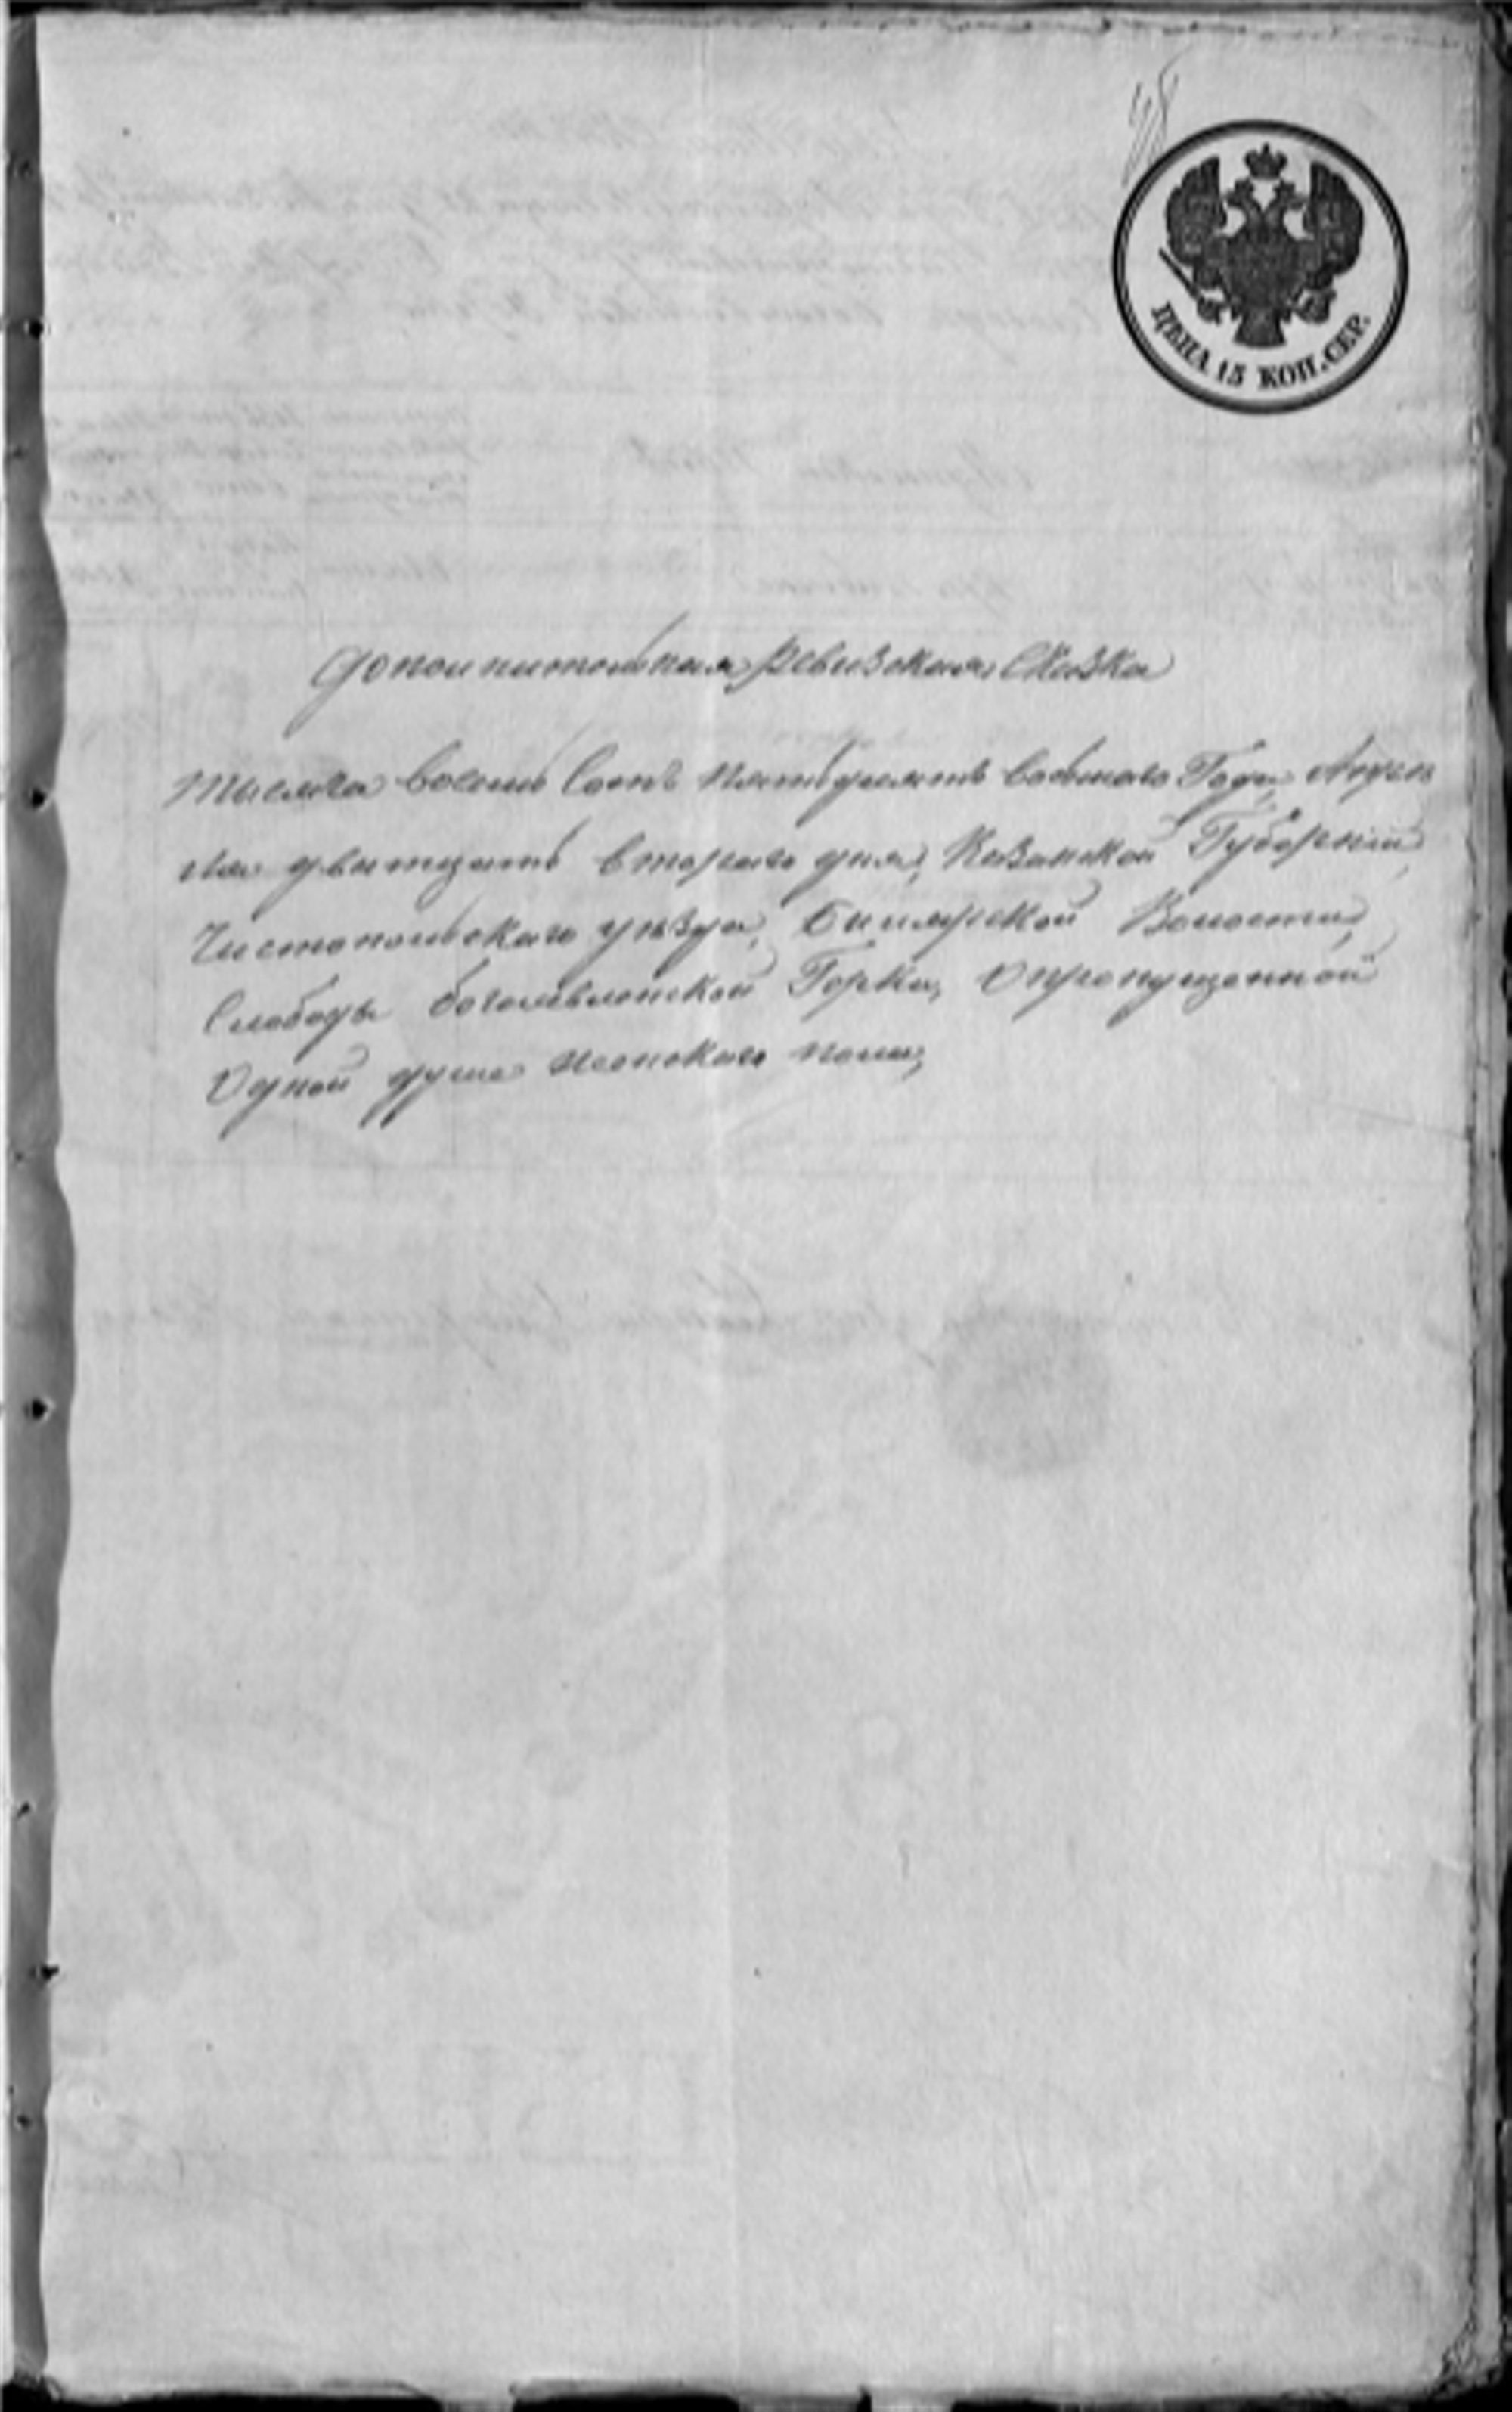 ЦѢНА 15 КОП. СЕР.
Дополнительная Ревизская Сказка
Тысяча восемь Сотъ пятьдесятъ восьмаго Года, Апрѣ
ля двытцать втораго дня, Казанской Губерніи,
Чистопольскаго уѣзда, Билярской Волости,
Слободы богоявленской Горки, О пропущенной
Одной душе женскаго пола,